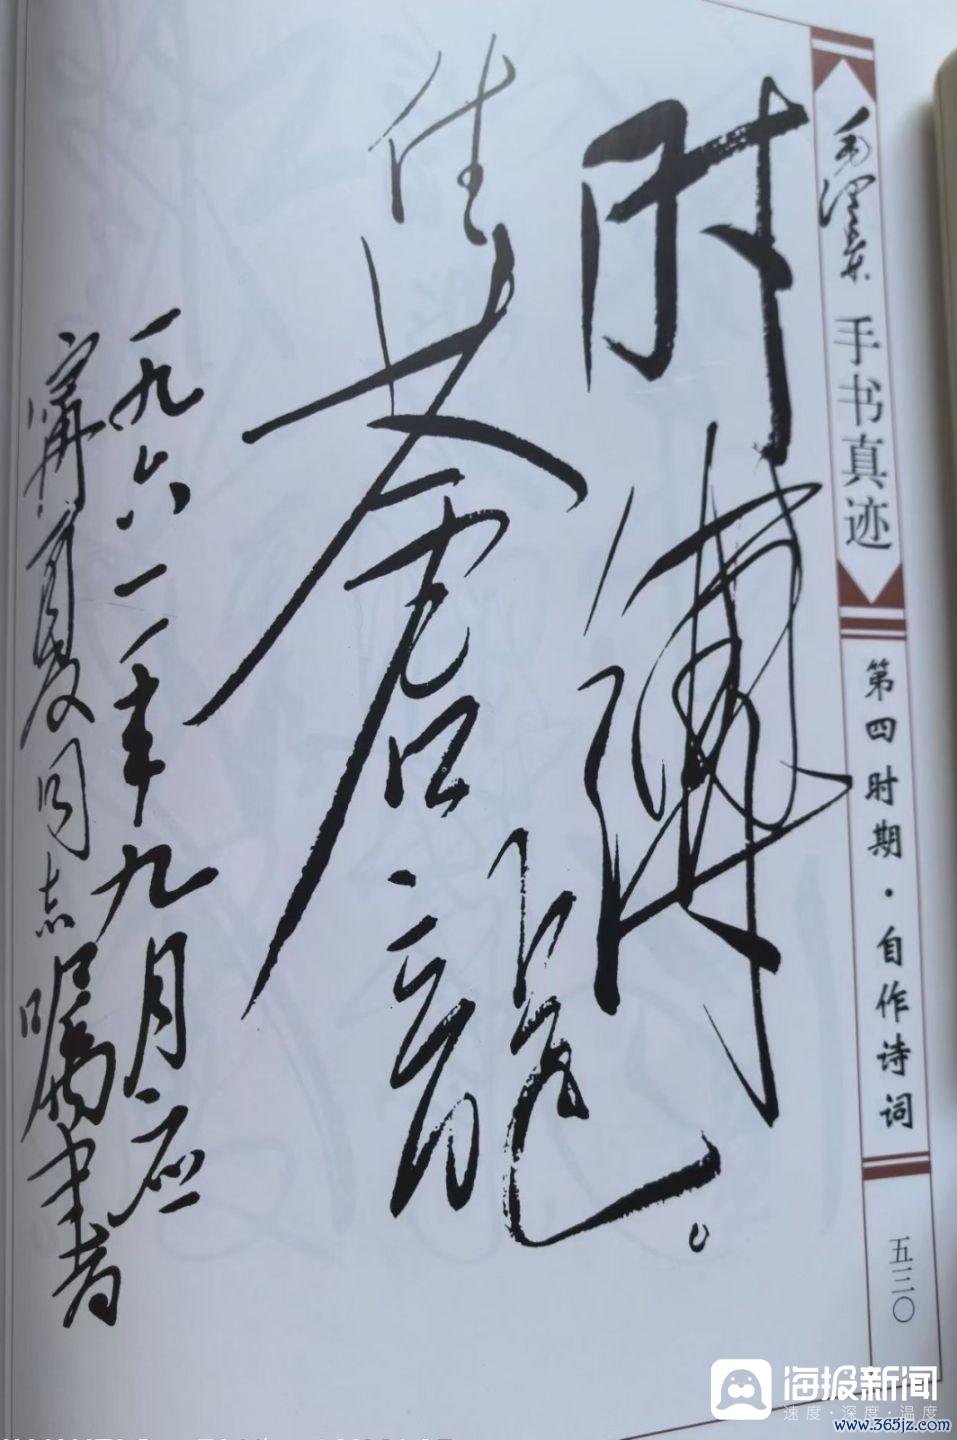 毛澤東 手书真迹
第四时期·自作诗词
五三〇
时縛
住蒼龍。
一九六一年九月应
寧夏同志嘱書
海报新闻
速度·深度·温度
www.365jz.com